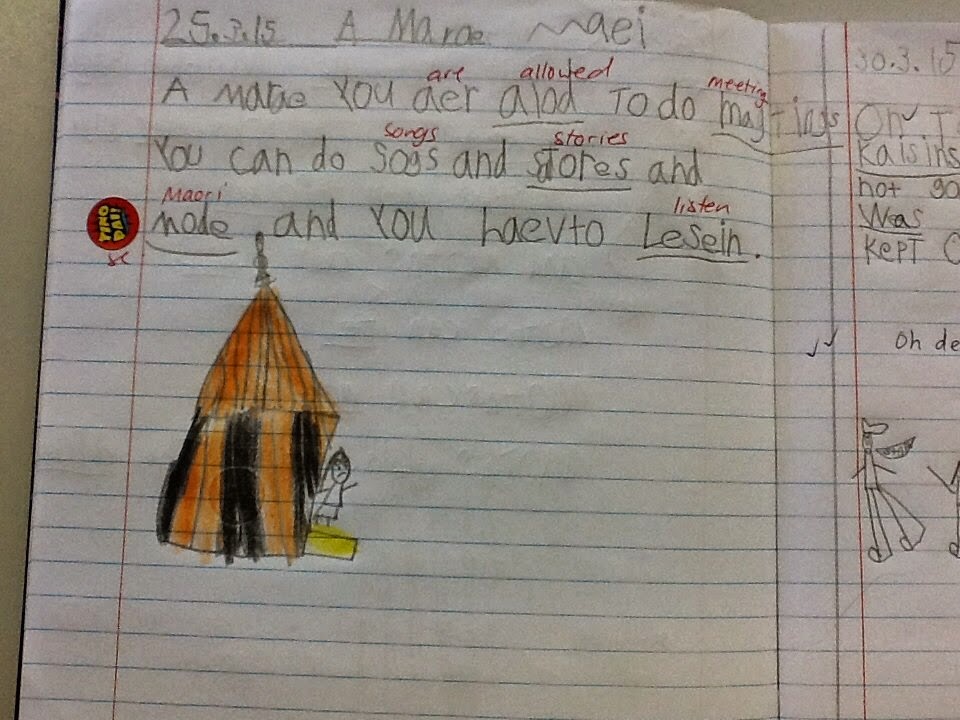 25.3.15 A Marae Maei
are allowed meeting
A marae You aer alod To do maytings
songs stories
You can do Sogs and stores and
Maori listen
mode and You haevto Lesein.
TINO PAI!
30.3.15
On
Kalsins
not go
Was
KepT
Oh de